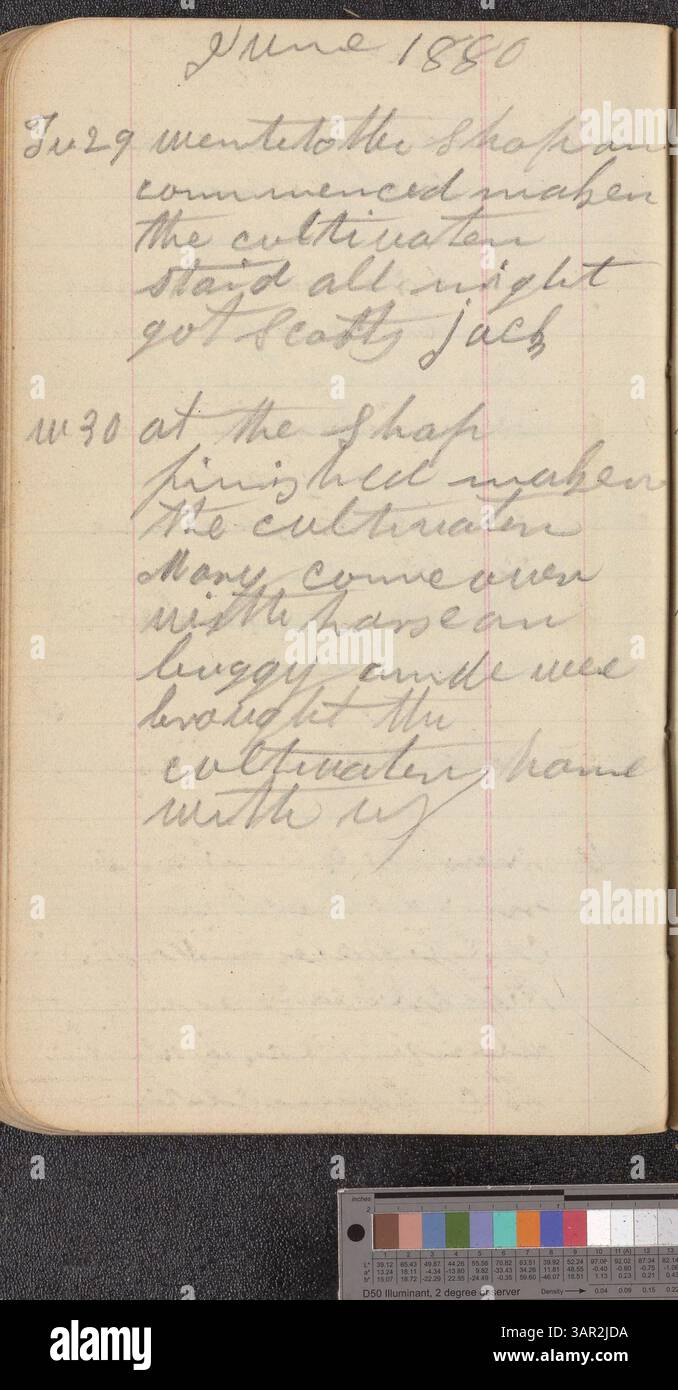 June 1880
Tu 29 went to the Shop an
commenced maken
the cultivaten
staid all night
got Scotts jack
W 30 at the Shop
finished maken
the cultivaten
Mary come over
with horse an
buggy and wee
brought the
cultivaten home
with us
alamy
inches
1 2 3 4 5 6 7 8 9 10 11 (A) 12 13
L* 39.12 65.43 49.87 44.26 55.56 70.82 63.51 39.92 52.24 97.06 92.02 87.34 82.14
a* 13.24 18.11 -4.34 -13.80 9.82 -33.43 34.26 11.81 48.55 -0.40 -0.60 -0.75
b* 15.07 18.72 -22.29 22.85 -24.49 -0.35 59.60 -46.07 18.51 1.13 0.23 0.21
D50 Illuminant, 2 degree observer Density 0.04 0.09 0.15 0.22
alamy
Image ID: 3AR2JDA
www.alamy.com